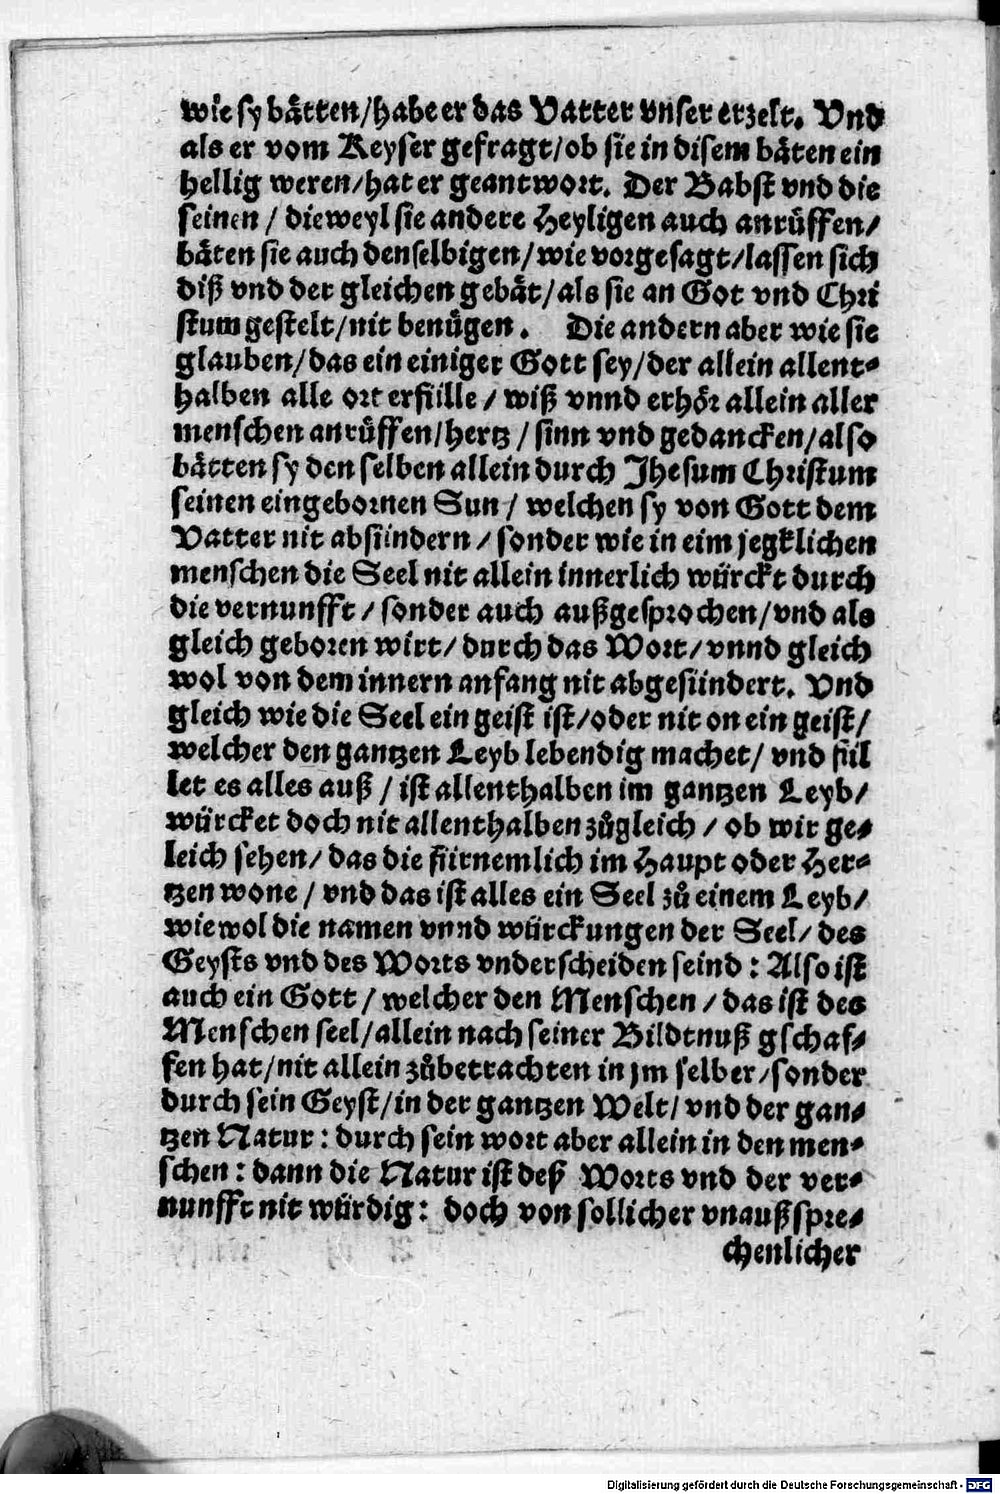 wie sy bätten/habe er das Vatter vnser erzelt. Vnd
als er vom Keyser gefragt/ob sie in disem bäten ein
hellig weren/hat er geantwort. Der Babst vnd die
seinen / dieweyl sie andere Heyligen auch anrüffen/
bäten sie auch denselbigen/wie vorgesagt/lassen sich
diß vnd der gleichen gebät/als sie an Got vnd Chri
stum gestelt/nit benügen. Die andern aber wie sie
glauben/das ein einiger Gott sey/der allein allent-
halben alle ort erfülle / wiß vnnd erhör allein aller
menschen anrüffen/hertz / sinn vnd gedancken/also
bätten sy den selben allein durch Jhesum Christum
seinen eingebornen Sun / welchen sy von Gott dem
Vatter nit absündern / sonder wie in eim jegklichen
menschen die Seel nit allein innerlich würckt durch
die vernunfft / sonder auch außgesprochen/vnd als
gleich geboren wirt/ durch das Wort/ vnnd gleich
wol von dem innern anfang nit abgesündert. Vnd
gleich wie die Seel ein geist ist/oder nit on ein geist/
welcher den gantzen Leyb lebendig machet/ vnd fül
let es alles auß / ist allenthalben im gantzen Leyb/
würcket doch nit allenthalben zůgleich / ob wir ge-
leich sehen/ das die fürnemlich im Haupt oder Her-
tzen wone / vnd das ist alles ein Seel zů einem Leyb/
wiewol die namen vnnd würckungen der Seel/ des
Geysts vnd des Worts vnderscheiden seind : Also ist
auch ein Gott / welcher den Menschen / das ist des
Menschen seel/allein nach seiner Bildtnuß gschaf-
fen hat/nit allein zůbetrachten in jm selber/sonder
durch sein Geyst/in der gantzen Welt/ vnd der gan-
tzen Natur : durch sein wort aber allein in den men-
schen : dann die Natur ist deß Worts vnd der ver-
nunfft nit würdig : doch von sollicher vnaußspre-
chenlicher
Digitalisierung gefördert durch die Deutsche Forschungsgemeinschaft - DFG